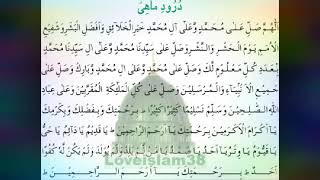 دُرُودِ مَاهِیْ
اَللّٰهُمَّ صَلِّ عَلٰى مُحَمَّدٍ وَّعَلٰٓى اٰلِ مُحَمَّدٍ خَيْرِ الْخَلَآئِقِ وَاَفْضَلِ الْبَشَرِ وَشَفِيْعِ
الْاُمَمِ يَوْمَ الْحَشْرِ وَالنَّشْرِ وَصَلِّ عَلٰى سَيِّدِنَا مُحَمَّدٍ وَّعَلٰٓى اٰلِ سَيِّدِنَا مُحَمَّدٍ
بِعَدَدِ كُلِّ مَعْلُوْمٍ لَّكَ وَصَلِّ عَلٰى مُحَمَّدٍ وَّعَلٰٓى اٰلِ مُحَمَّدٍ وَّبَارِكْ وَسَلِّمْ وَصَلِّ عَلٰى
جَمِيْعِ الْاَنْبِيَآءِ وَالْمُرْسَلِيْنَ وَصَلِّ عَلٰى كُلِّ الْمَلٰٓئِكَةِ الْمُقَرَّبِيْنَ وَعَلٰى عِبَادِ
اللّٰهِ الصّٰلِحِيْنَ وَسَلِّمْ تَسْلِيْمًا كَثِيْرًا كَثِيْرًا بِرَحْمَتِكَ وَبِفَضْلِكَ وَبِكَرَمِكَ
يَا اَكْرَمَ الْاَكْرَمِيْنَ بِرَحْمَتِكَ يَا اَرْحَمَ الرَّاحِمِيْنَ يَا قَدِيْمُ يَا دَآئِمُ يَا حَيُّ
يَا قَيُّوْمُ يَا وِتْرُ يَا اَحَدُ يَا صَمَدُ يَا مَنْ لَّمْ يَلِدْ وَلَمْ يُوْلَدْ وَلَمْ يَكُنْ لَّهٗ كُفُوًا
اَحَدٌ بِرَحْمَتِكَ يَا اَرْحَمَ الرَّاحِمِيْنَ
Loveislam38